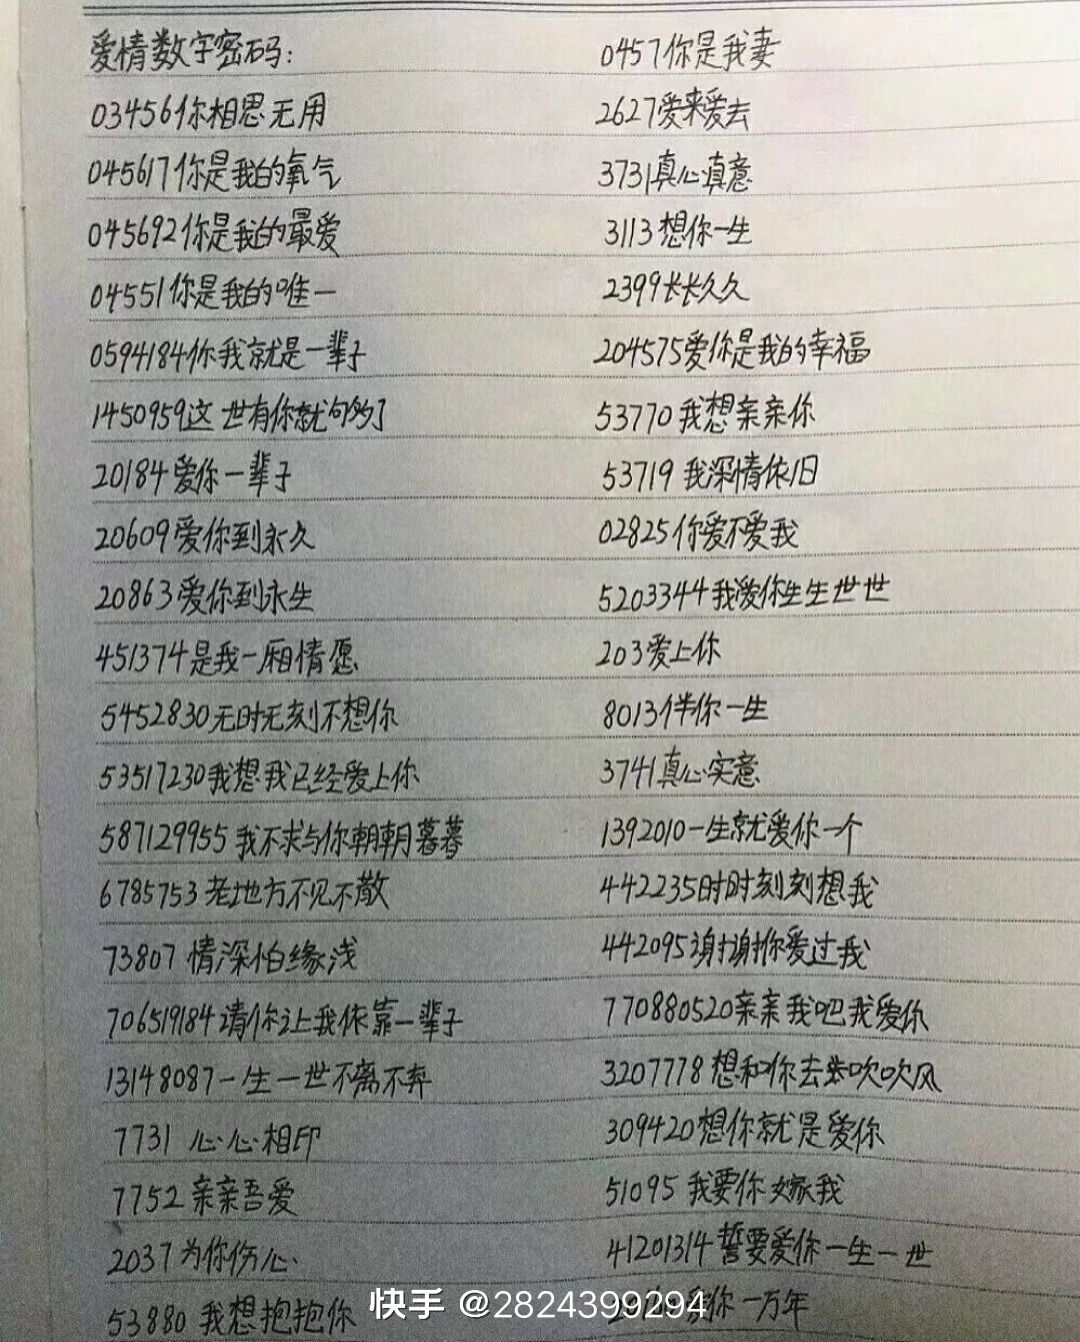 爱情数字密码:
03456你相思无用
045617你是我的氧气
045692你是我的最爱
04551你是我的唯一
0594184你我就是一辈子
1450959这世有你就够了
20184爱你一辈子
20609爱你到永久
20863爱你到永生
451374是我一厢情愿
5452830无时无刻不想你
53517230我想我已经爱上你
587129955我不求与你朝朝暮暮
6785753老地方不见不散
73807情深怕缘浅
706519184请你让我依靠一辈子
13148087一生一世不离不弃
7731心心相印
7752亲亲吾爱
2037为你伤心
53880我想抱抱你
0457你是我妻
2627爱来爱去
3731真心真意
3113想你一生
2399长长久久
204575爱你是我的幸福
53770我想亲亲你
53719我深情依旧
02825你爱不爱我
5203344我爱你生生世世
203爱上你
8013伴你一生
3741真心实意
1392010一生就爱你一个
442235时时刻刻想我
442095谢谢你爱过我
770880520亲亲我吧我爱你
3207778想和你去吹吹风
309420想你就是爱你
51095我要你嫁我
41201314誓要爱你一生一世
你一万年
快手 @2824399294